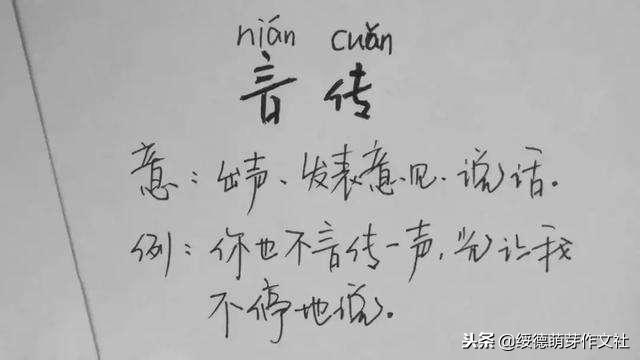 nián cuǎn
音传
意：出声、发表意见、说话。
例：你也不音传一声，光让我
不停地说。
头条 @绥德萌芽作文社